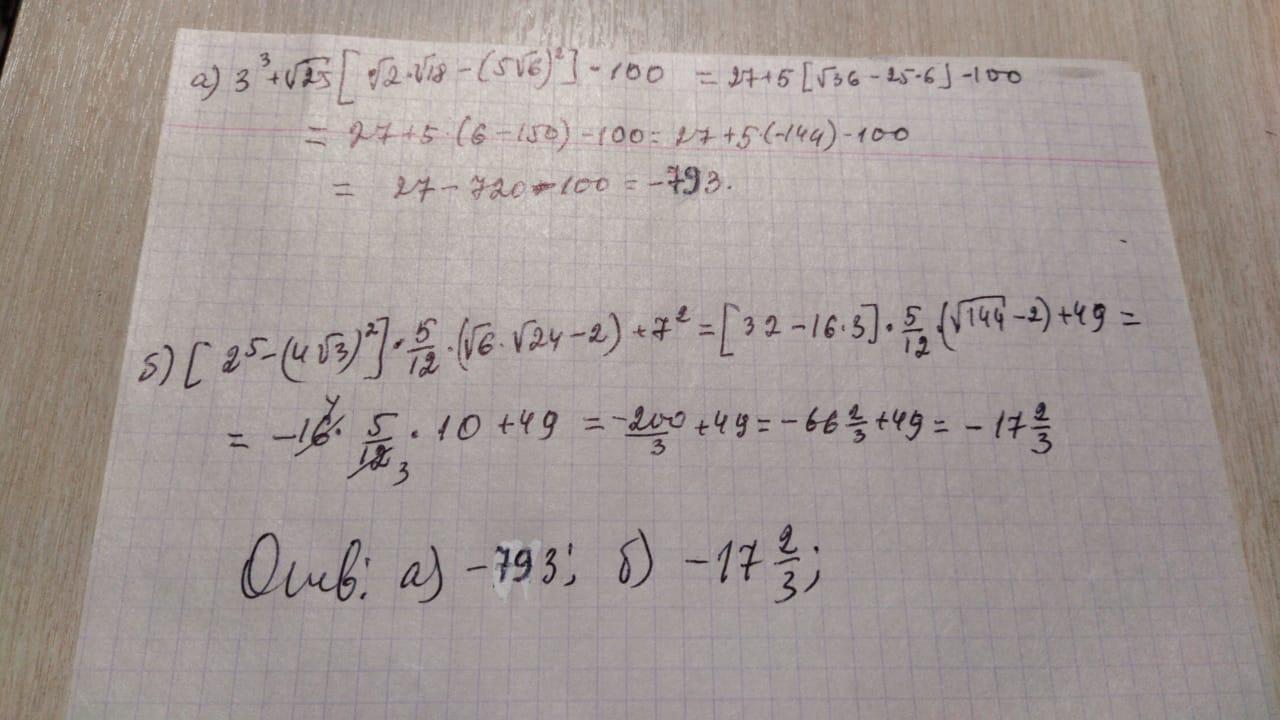 а) 3³+√25[√2·√18-(5√6)²]-100 = 27+5[√36-25·6]-100
= 27+5·(6-150)-100= 27+5·(-144)-100
= 27-720-100=-793.
б) [2⁵-(4√3)²]·5/12·(√6·√24-2)+7²=[32-16·3]·5/12·(√144-2)+49=
= -16· 4 5/12 3 ·10+49 = -200/3+49=-66 2/3+49=-17 2/3
Отв: а) -793; б) -17 2/3;